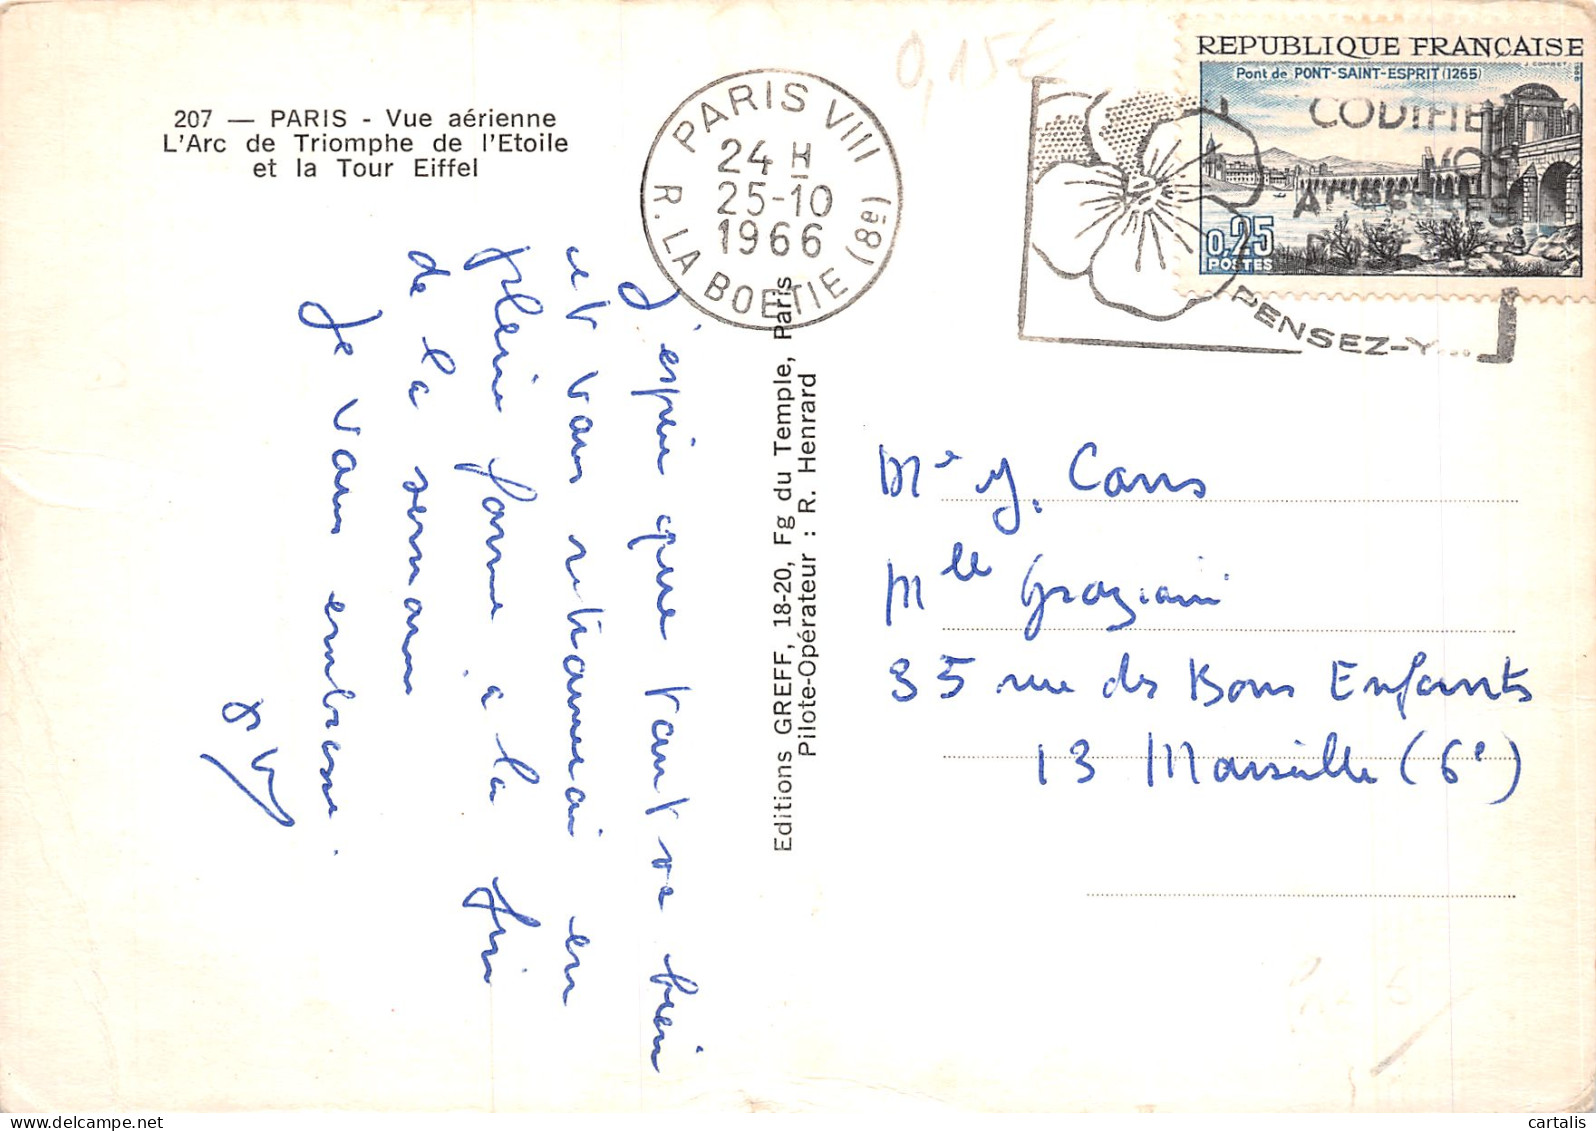 207 — PARIS - Vue aérienne
L'Arc de Triomphe de l'Etoile
et la Tour Eiffel
PARIS VIII
24 H
25-10
1966
R. LA BOETIE (8e)
0,15€
REPUBLIQUE FRANÇAISE
Pont de PONT-SAINT-ESPRIT (1265)
0,25
POSTES
CODIFIEZ
VOS
ADRESSES
PENSEZ-Y...
J'espère que tout va bien
et vous retrouverai en
pleine forme à la fin
de la semaine
Je vous embrasse.
Editions GREFF, 18-20, Fg du Temple, Paris
Pilote-Opérateur : R. Henrard
Mlle Graziani
35 rue des Bons Enfants
13 Marseille (6e)
cartalis
www.delcampe.net